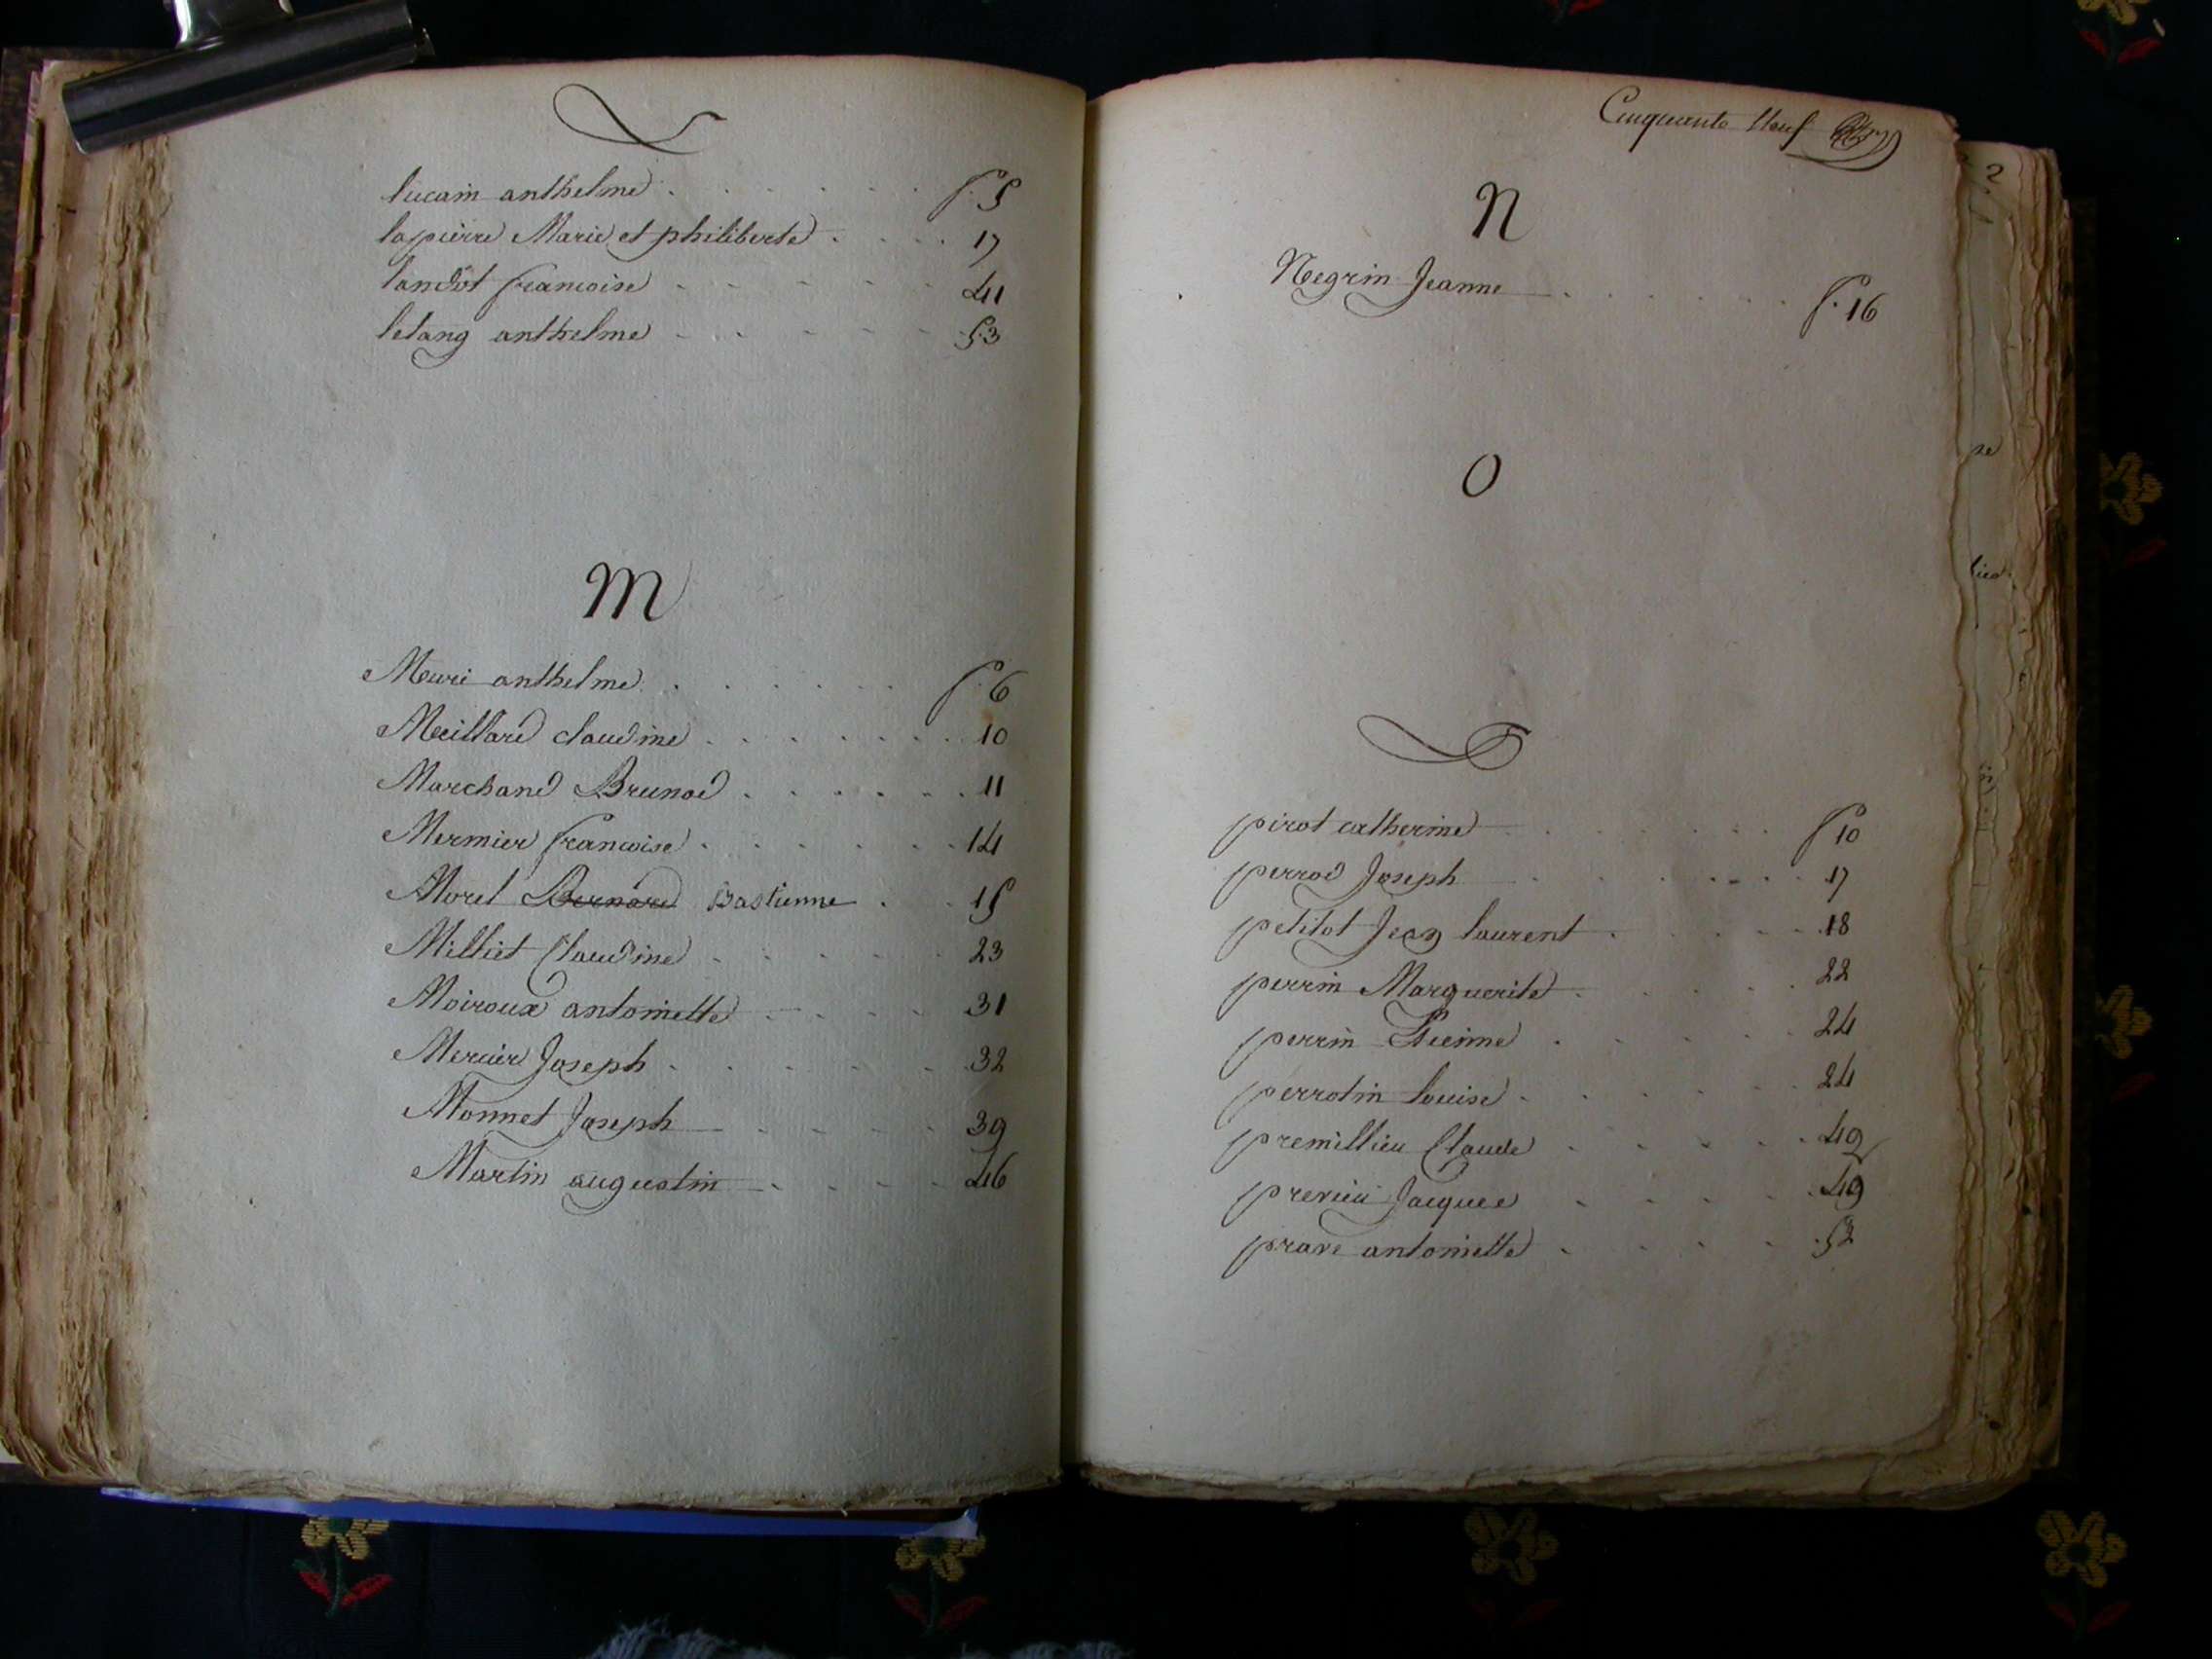 L
lucain anthelme . . . . . . f. 5
lapierre Marie et philiberte . . . . 17
landot francoise - - - - - 41
letang anthelme - - - - - 53
M
Meuri anthelme . . . . . . f. 6
Meillard claudine . . . . . . . 10
Marchand Brunod . . . . . . 11
Mermier francoise . . . . . . 14
Morel Bernard Bastienne . . 15
Milliet Claudine - - - - - 23
Moiroux antoinette - - - - 31
Mercier Joseph . . . . . . 32
Monnet Joseph - - - - 39
Martin augustin - - - - 46
Cinquante Neuf
N
Negrin Jeanne . . . . . . f. 16
O
P
pirot catherine . . . . . . f 10
perrod Joseph . . . . . . 17
petitot Jean laurent . . . . . 18
perrin Marguerite . . . . 22
perrin Etienne . . . . 24
perrotin louise . . . . . 24
premillieu Claude . . . . . 49
previeu Jacques . . . . . 49
prave antoinette . . . . . 52